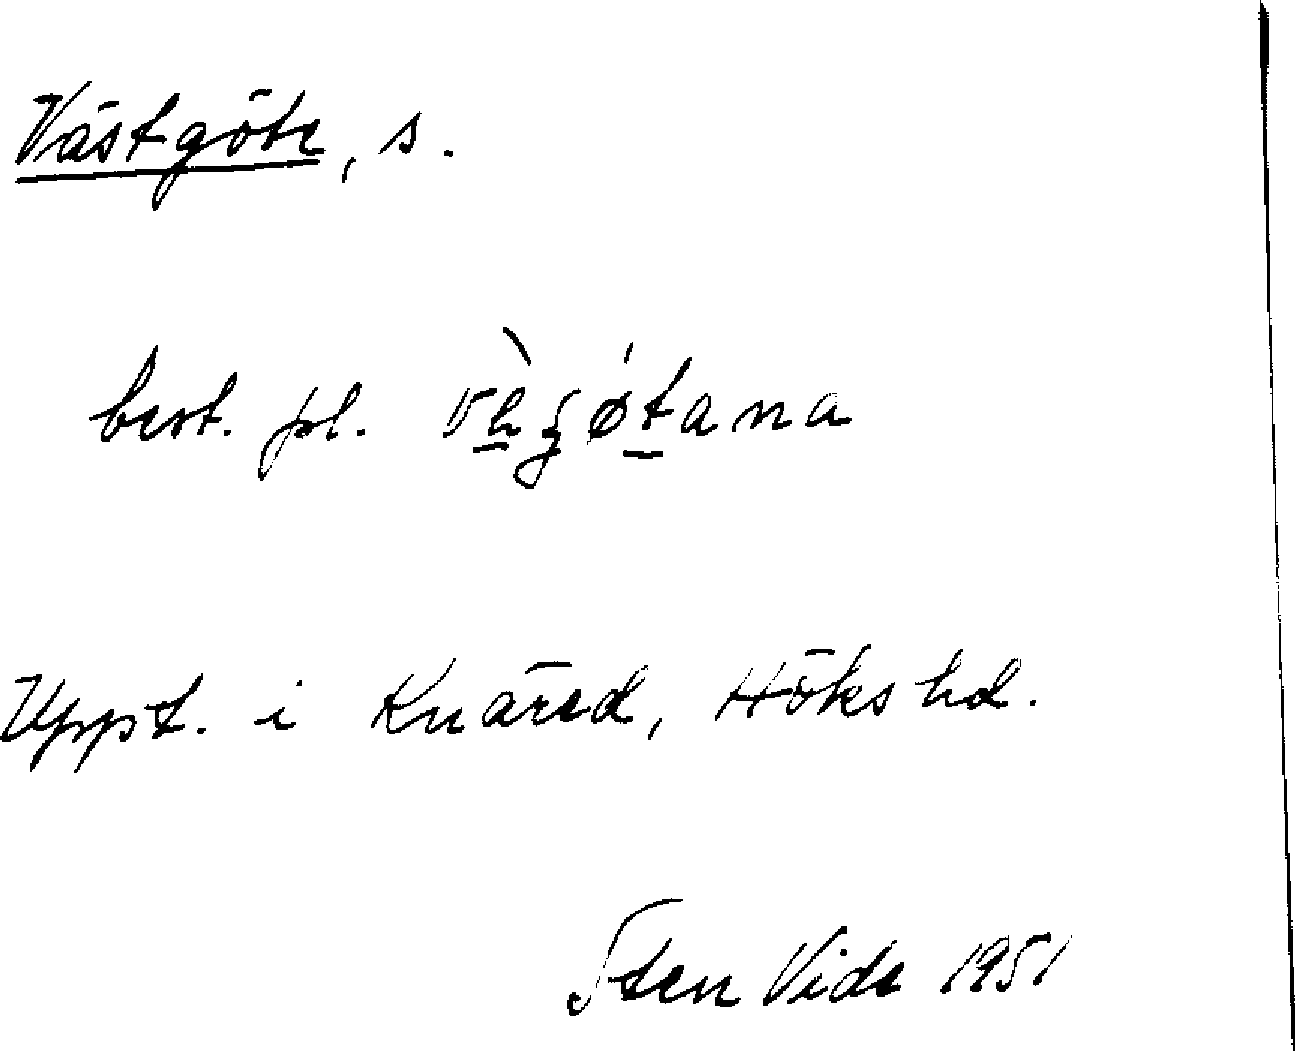 Västgöte, s.
best. pl. vèʒǿtana
Uppt. i Knäred, Höks hd.
Sten Vide 1951